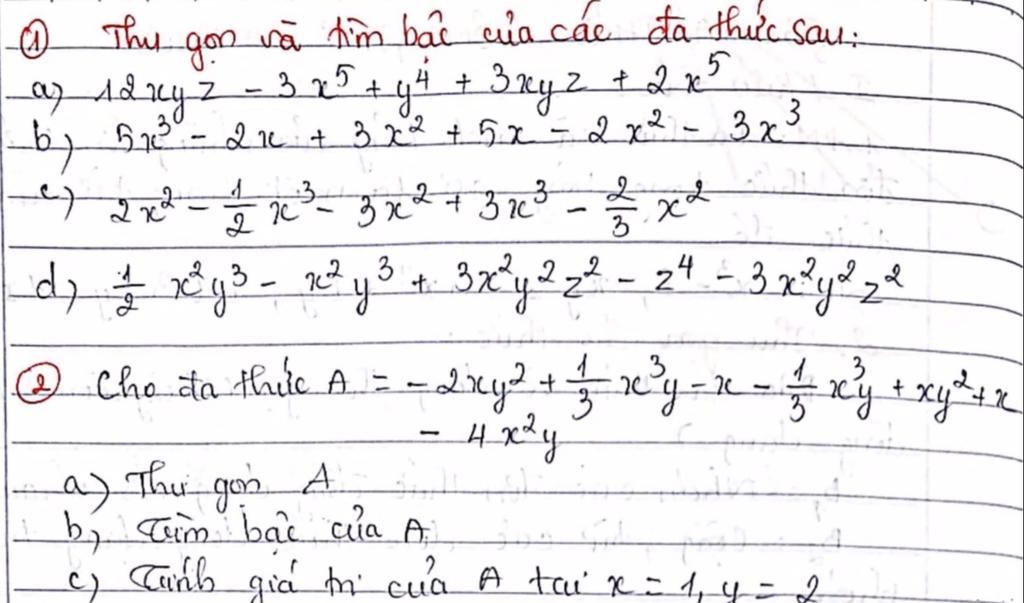 ① Thu gọn và tìm bậc của các đa thức sau:
a) 12xyz - 3x⁵ + y⁴ + 3xyz + 2x⁵
b) 5x³ - 2x + 3x² + 5x - 2x² - 3x³
c) 2x² - 1/2 x³ - 3x² + 3x³ - 2/3 x²
d) 1/2 x²y³ - x²y³ + 3x²y²z² - z⁴ - 3x²y²z²
② Cho đa thức A = - 2xy² + 1/3 x³y - x - 1/3 x³y + xy² + x
- 4x²y
a) Thu gọn A
b) Tìm bậc của A
c) Tính giá trị của A tại x = 1, y = 2